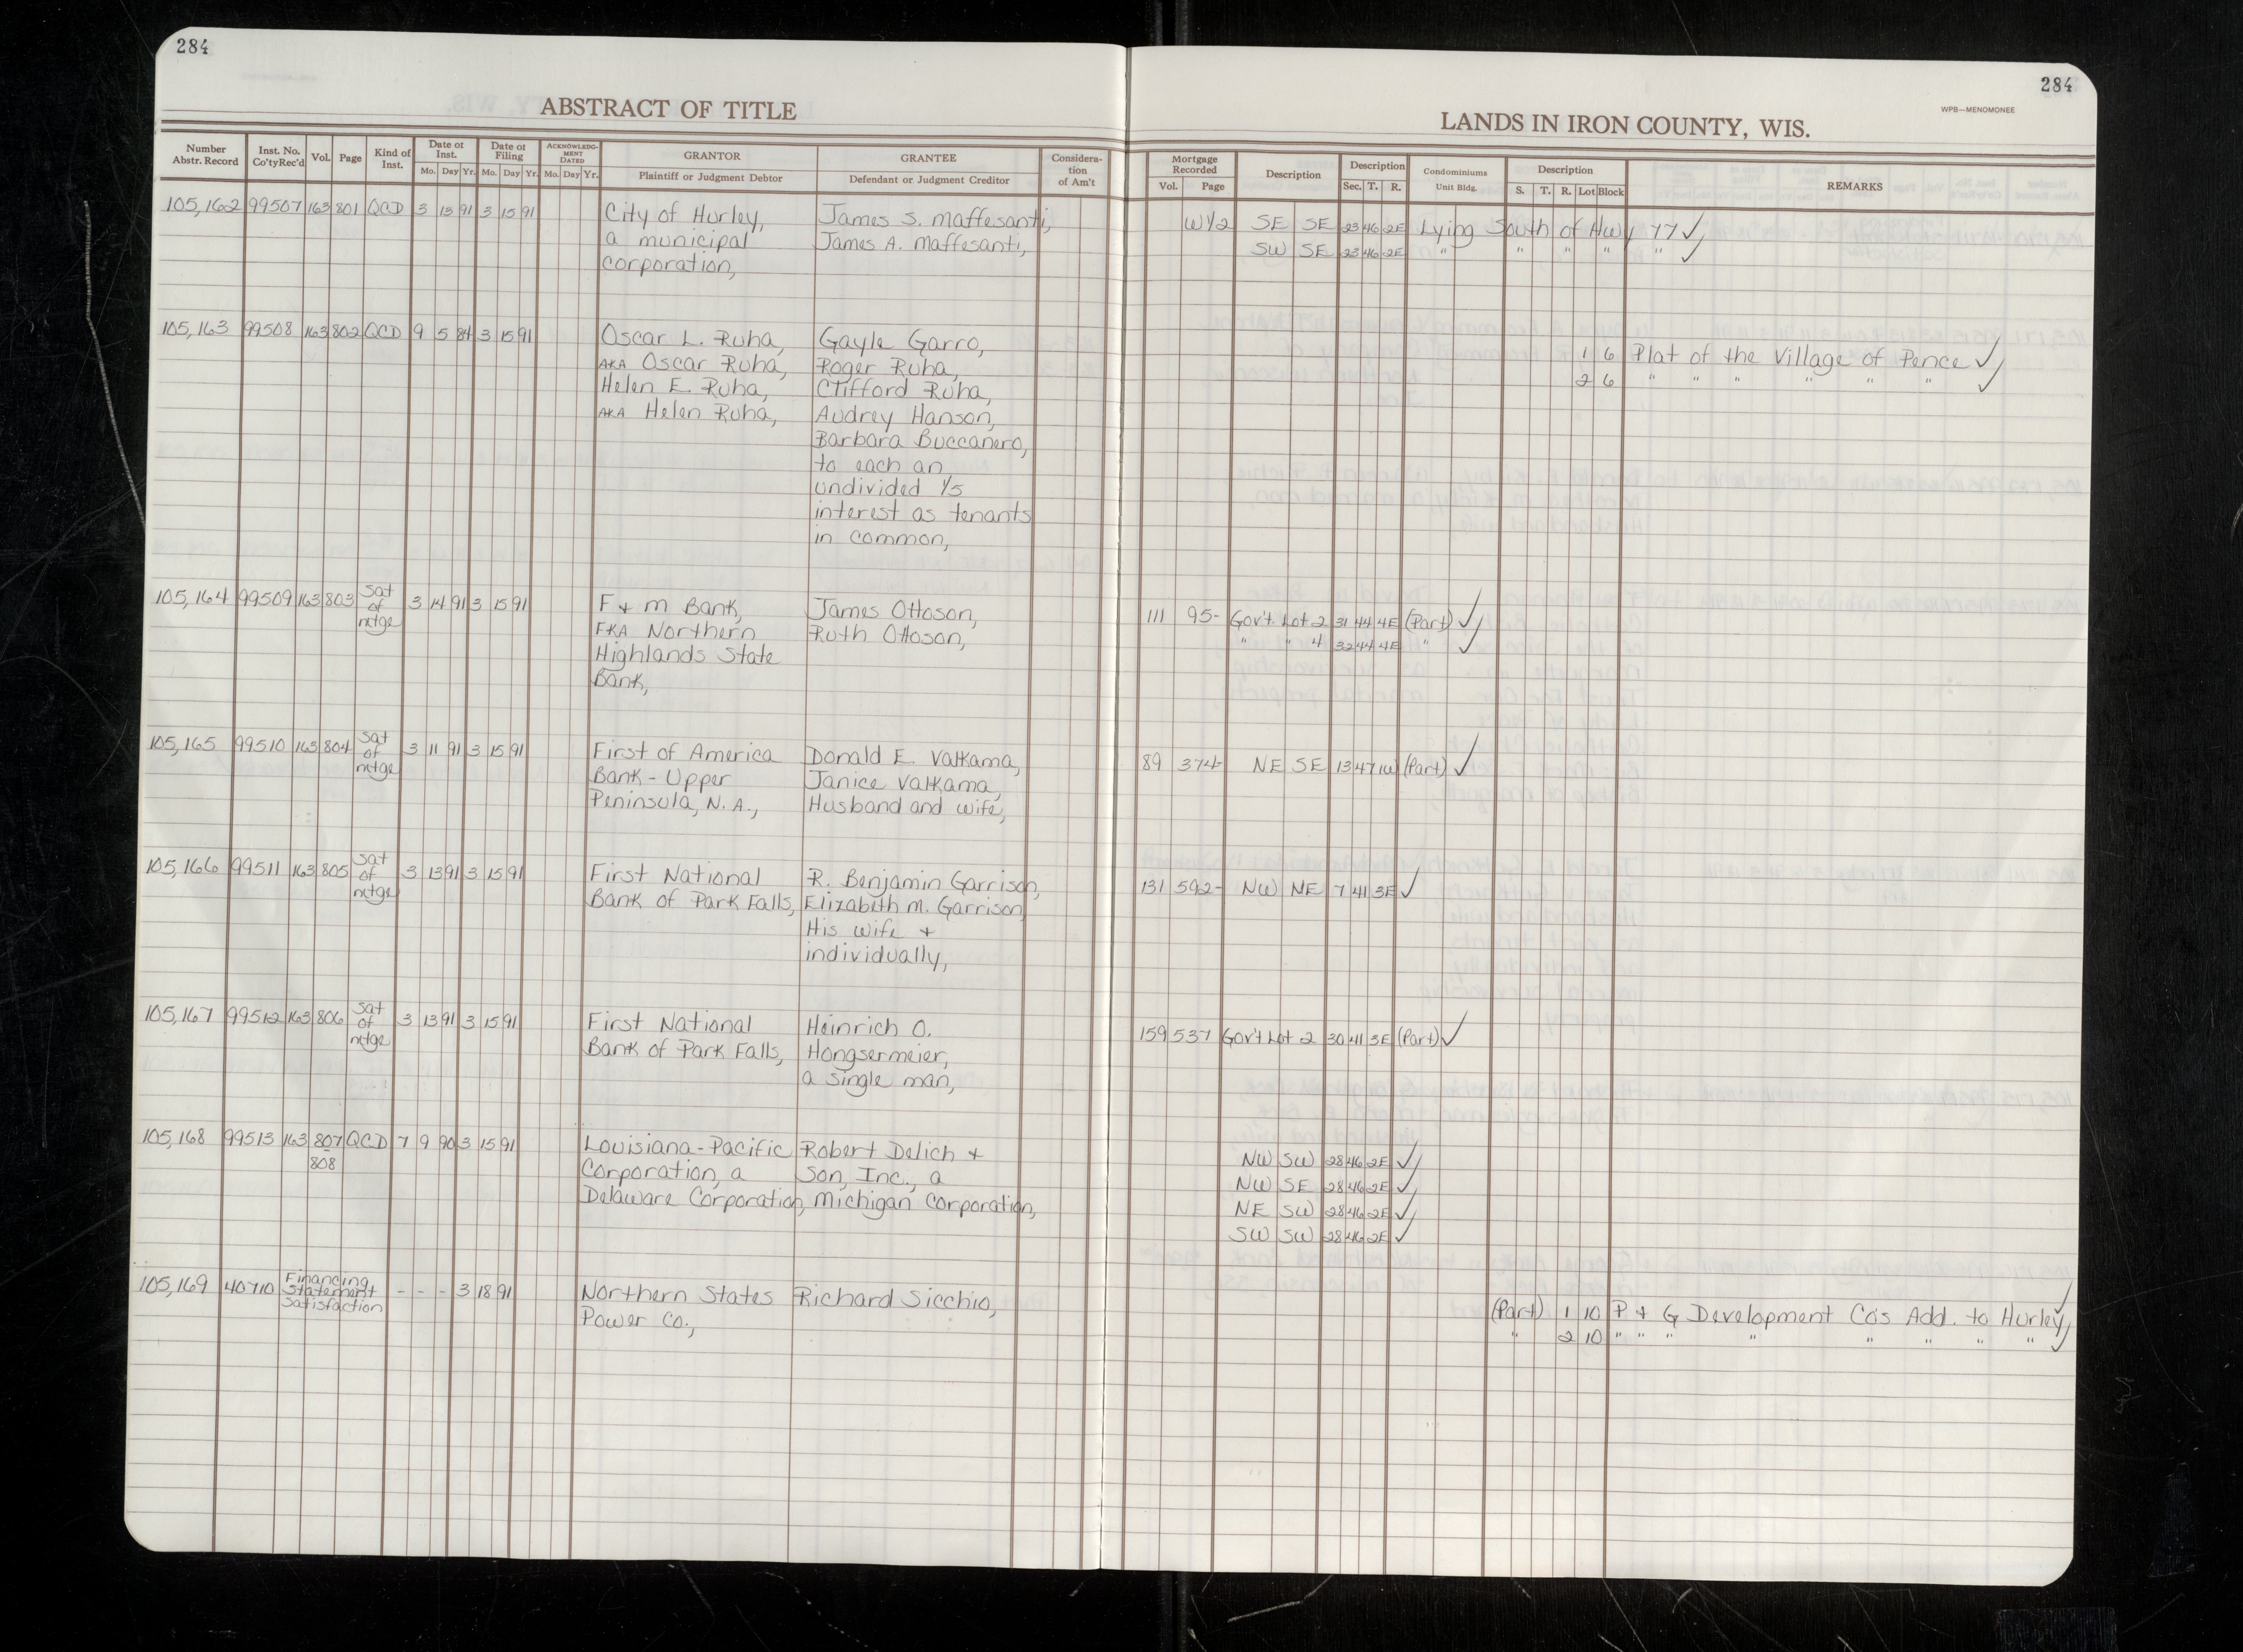 284
284
ABSTRACT OF TITLE
LANDS IN IRON COUNTY, WIS.
WPB—MENOMONEE
Number Abstr. Record Inst. No. Co'tyRec'd Vol. Page Kind of Inst. Date of Inst. Mo. Day Yr. Date of Filing Mo. Day Yr. ACKNOWLEDGMENT DATED Mo. Day Yr. GRANTOR Plaintiff or Judgment Debtor GRANTEE Defendant or Judgment Creditor Consideration of Am't
Mortgage Recorded Vol. Page Description Description Sec. T. R. Condominiums Unit Bldg. Description S. T. R. Lot Block REMARKS
105,162 99507 163 801 QCD 3 13 91 3 15 91 City of Hurley, James S. Maffesanti,
a municipal James A. Maffesanti,
corporation,
W1/2 SE SE 23 46 2E Lying South of Hwy 77 ✓
SW SE 23 46 2E " " " " " ✓
105,163 99508 163 802 QCD 9 5 84 3 15 91 Oscar L. Ruha, Gayle Garro,
AKA Oscar Ruha, Roger Ruha,
Helen E. Ruha, Clifford Ruha,
AKA Helen Ruha, Audrey Hanson,
Barbara Buccanero,
to each an
undivided 1/5
interest as tenants
in common,
1 6 Plat of the Village of Pence ✓
2 6 " " " " " " ✓
105,164 99509 163 803 Sat of mtge 3 14 91 3 15 91 F + M Bank, James Ottoson,
FKA Northern Ruth Ottoson,
Highlands State
Bank,
111 95- Gov't Lot 2 31 44 4E (Part) ✓
" " 4 32 44 4E " ✓
105,165 99510 163 804 Sat of mtge 3 11 91 3 15 91 First of America Donald E. Valkama,
Bank - Upper Janice Valkama,
Peninsula, N.A., Husband and wife,
89 374- NE SE 13 47 1W (Part) ✓
105,166 99511 163 805 Sat of mtge 3 13 91 3 15 91 First National R. Benjamin Garrison,
Bank of Park Falls, Elizabeth M. Garrison,
His wife +
individually,
131 592- NW NE 7 41 3E ✓
105,167 99512 163 806 Sat of mtge 3 13 91 3 15 91 First National Heinrich O.
Bank of Park Falls, Hongsermeier,
a single man,
159 537 Gov't Lot 2 30 41 3E (Part) ✓
105,168 99513 163 807 QCD 7 9 90 3 15 91 Louisiana-Pacific Robert Delich +
808 Corporation, a Son, Inc., a
Delaware Corporation, Michigan Corporation,
NW SW 28 46 2E ✓
NW SE 28 46 2E ✓
NE SW 28 46 2E ✓
SW SW 28 46 2E ✓
105,169 40710 Financing Statement Satisfaction - - - 3 18 91 Northern States Richard Sicchio,
Power Co.,
(Part) 1 10 P + G Development Co's Add. to Hurley ✓
" 2 10 " " " " " " " " ✓